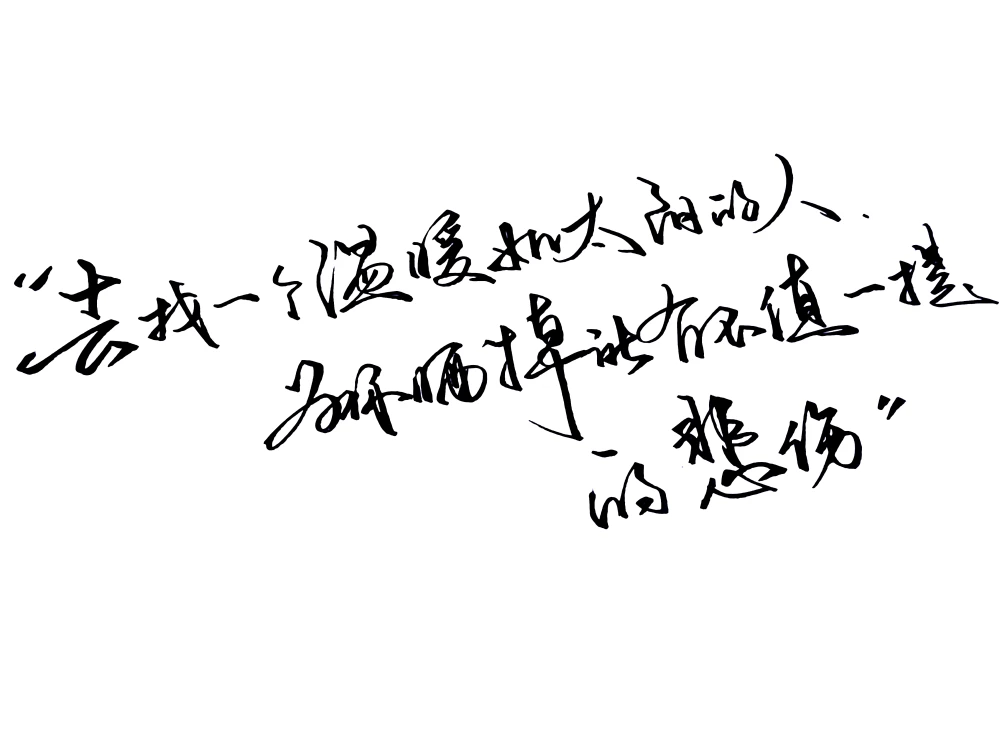 “去找一个温暖如太阳的人.
为你晒掉所有不值一提
的悲伤”